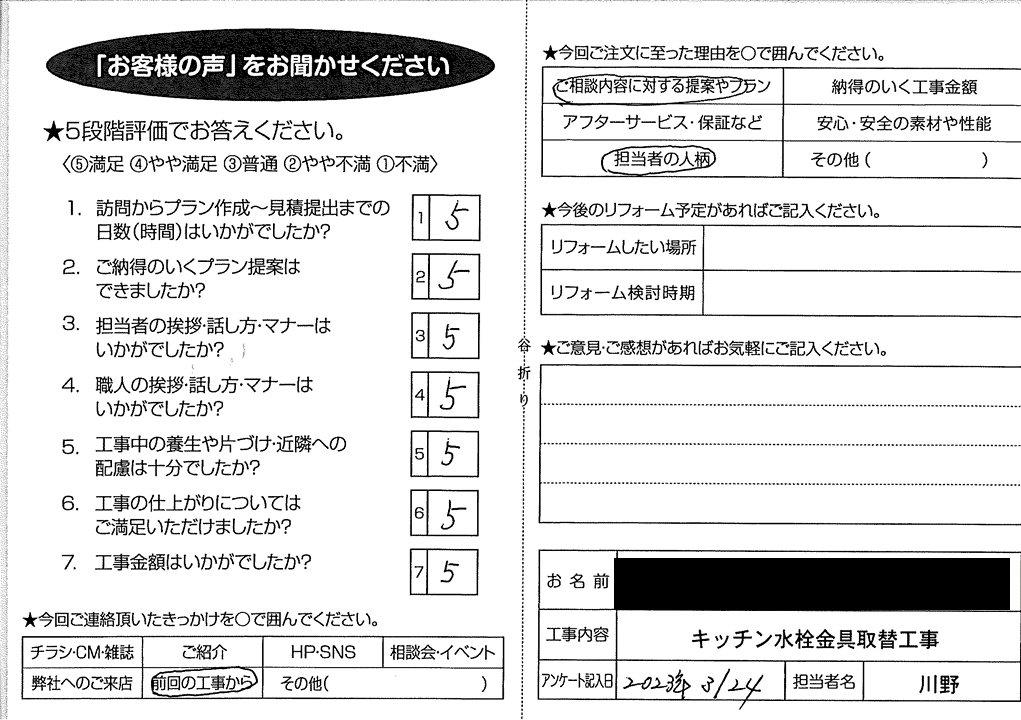 「お客様の声」をお聞かせください
★5段階評価でお答えください。
〈⑤満足 ④やや満足 ③普通 ②やや不満 ①不満〉
1. 訪問からプラン作成〜見積提出までの
日数(時間)はいかがでしたか?
1 5
2. ご納得のいくプラン提案は
できましたか?
2 5
3. 担当者の挨拶・話し方・マナーは
いかがでしたか?
3 5
4. 職人の挨拶・話し方・マナーは
いかがでしたか?
4 5
5. 工事中の養生や片づけ・近隣への
配慮は十分でしたか?
5 5
6. 工事の仕上がりについては
ご満足いただけましたか?
6 5
7. 工事金額はいかがでしたか?
7 5
★今回ご連絡頂いたきっかけを○で囲んでください。
チラシ・CM・雑誌 ご紹介 HP・SNS 相談会・イベント
弊社へのご来店 前回の工事から その他( )
谷折り
★今回ご注文に至った理由を○で囲んでください。
ご相談内容に対する提案やプラン 納得のいく工事金額
アフターサービス・保証など 安心・安全の素材や性能
担当者の人柄 その他( )
★今後のリフォーム予定があればご記入ください。
リフォームしたい場所
リフォーム検討時期
★ご意見・ご感想があればお気軽にご記入ください。
お名前
工事内容 キッチン水栓金具取替工事
アンケート記入日 2023年 3/24 担当者名 川野